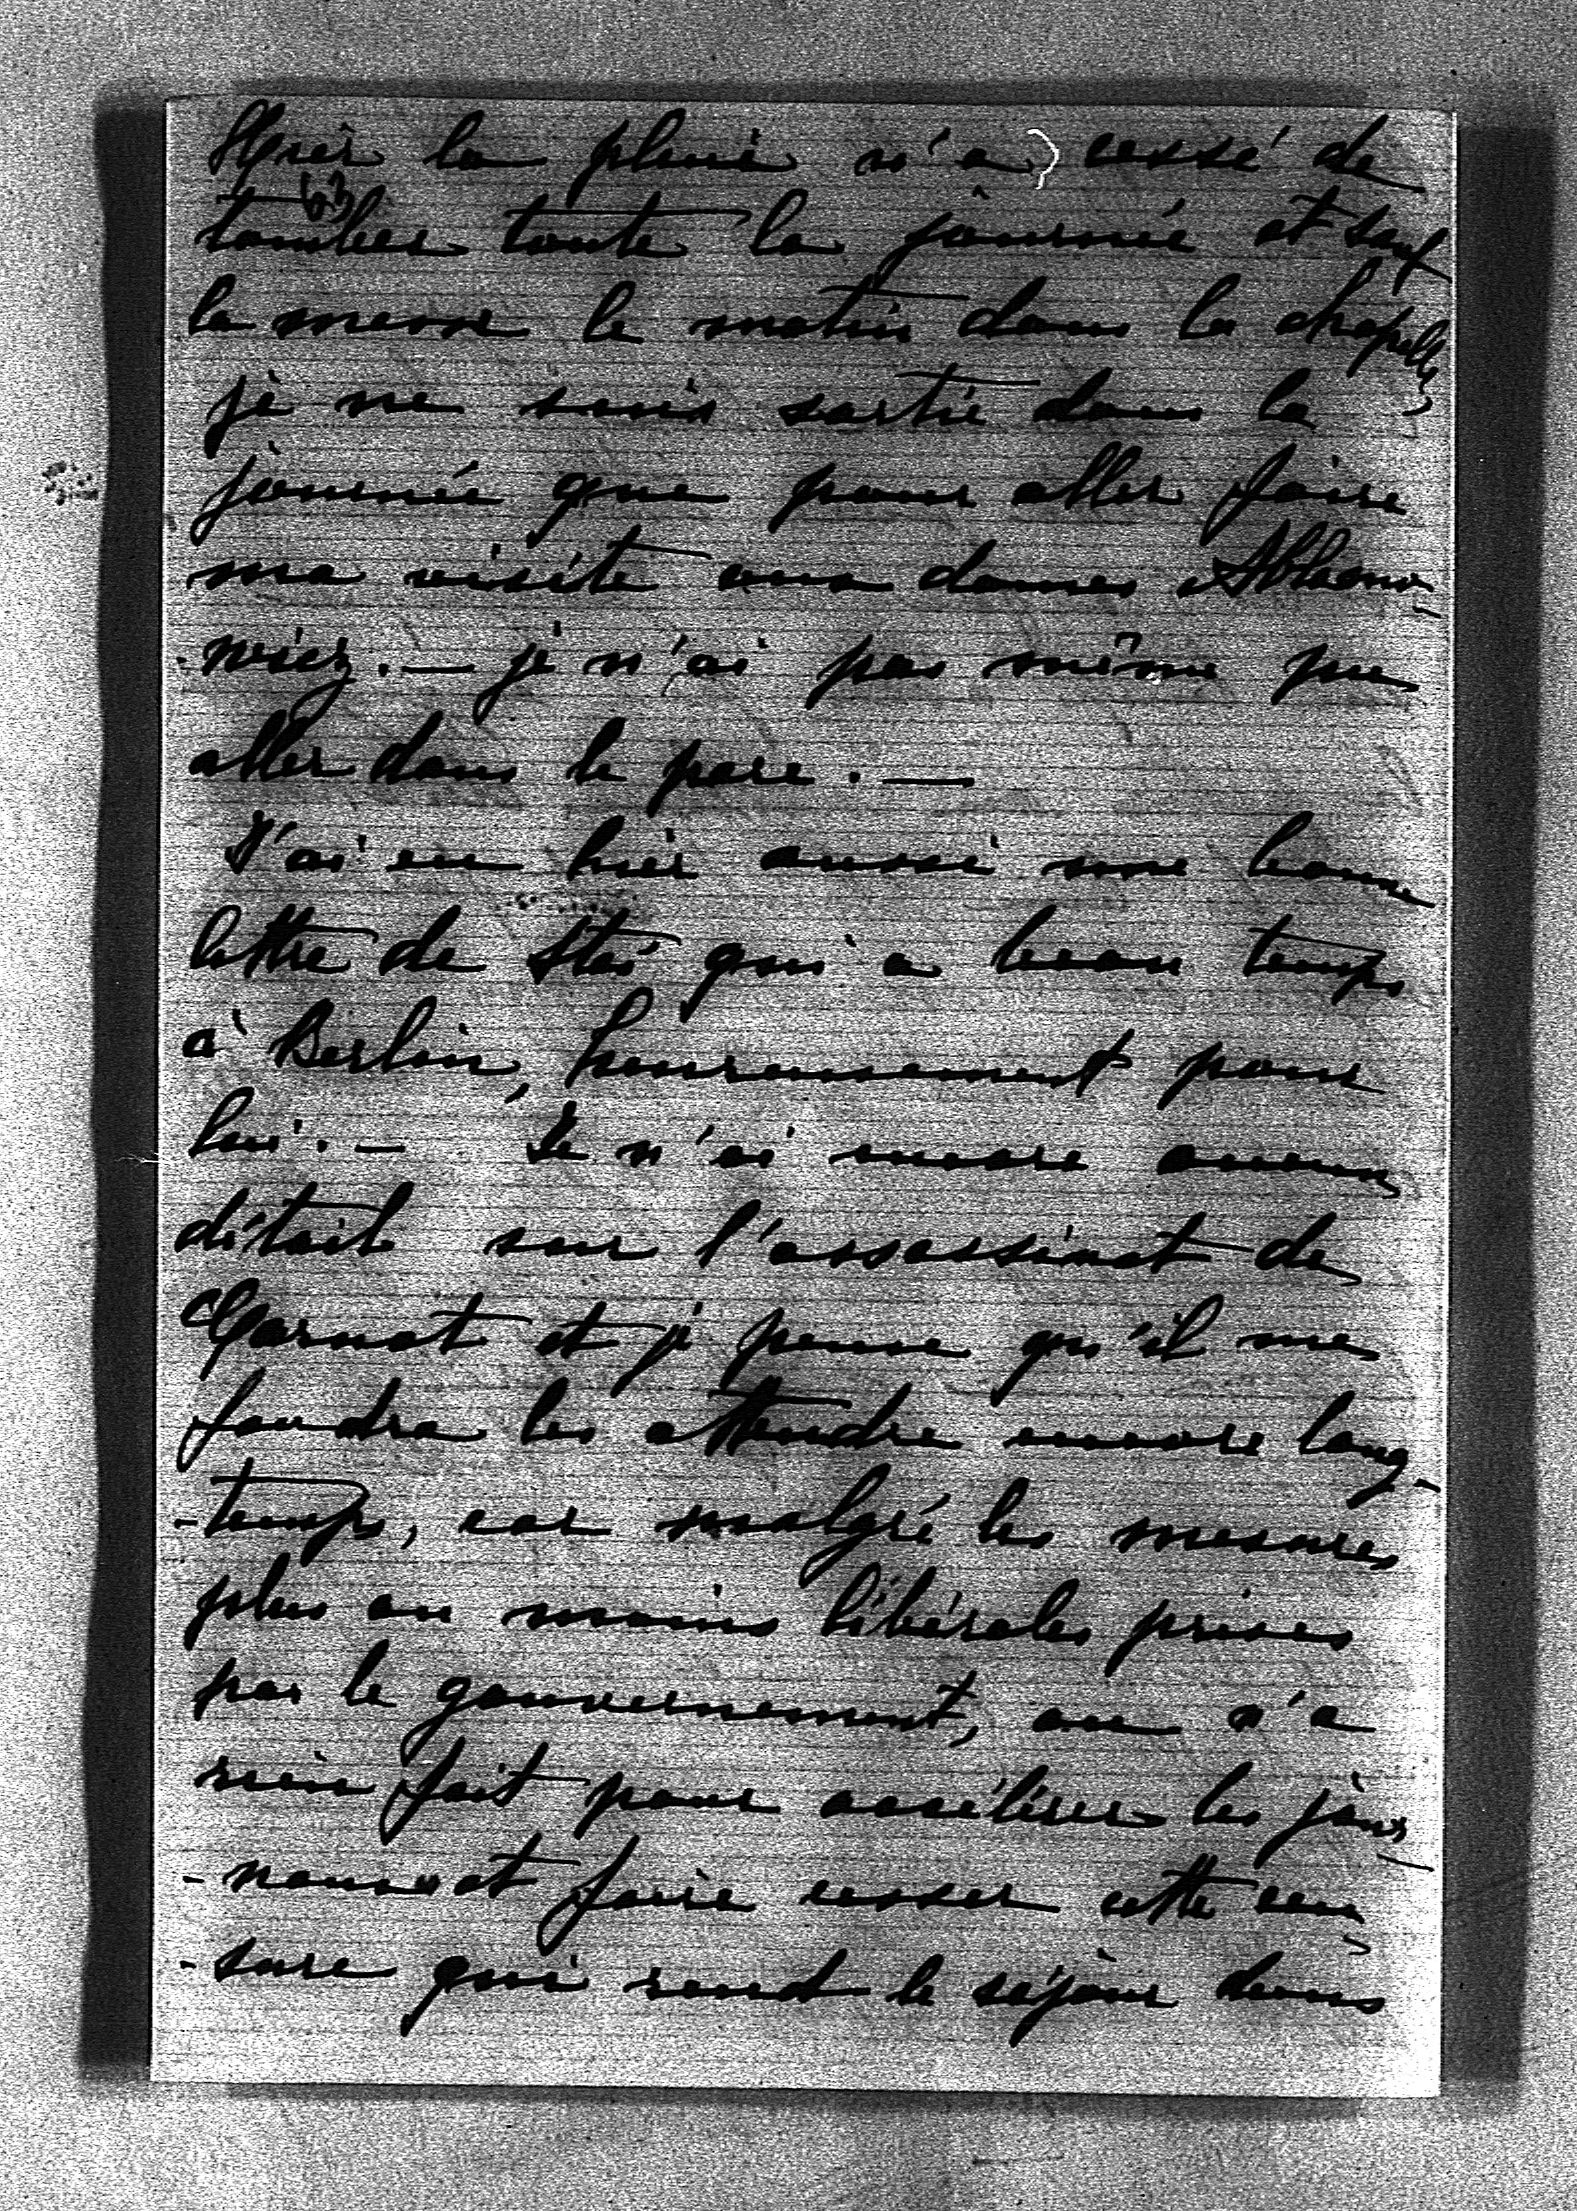 Hier la pluie n'a cessé de
63
tomber toute la journée et sauf
la messe le matin dans la chapelle,
je ne suis sortie dans la
journée que pour aller faire
ma visite aux dames
-wicz. — je n'ai pas même pu
aller dans le parc. —
J'ai eu hier aussi une bonne
lettre de Staś qui a beau temps
à Berlin, heureusement pour
lui. — Je n'ai encore aucun
détail sur l'assassinat de
Carnot et je pense qu'il me
faudra les attendre encore long-
-temps, car malgré les mesures
plus ou moins libérales prises
par le gouvernement, on n'a
rien fait pour accélérer les jour-
-naux et faire cesser cette cen-
-sure qui rend le séjour dans